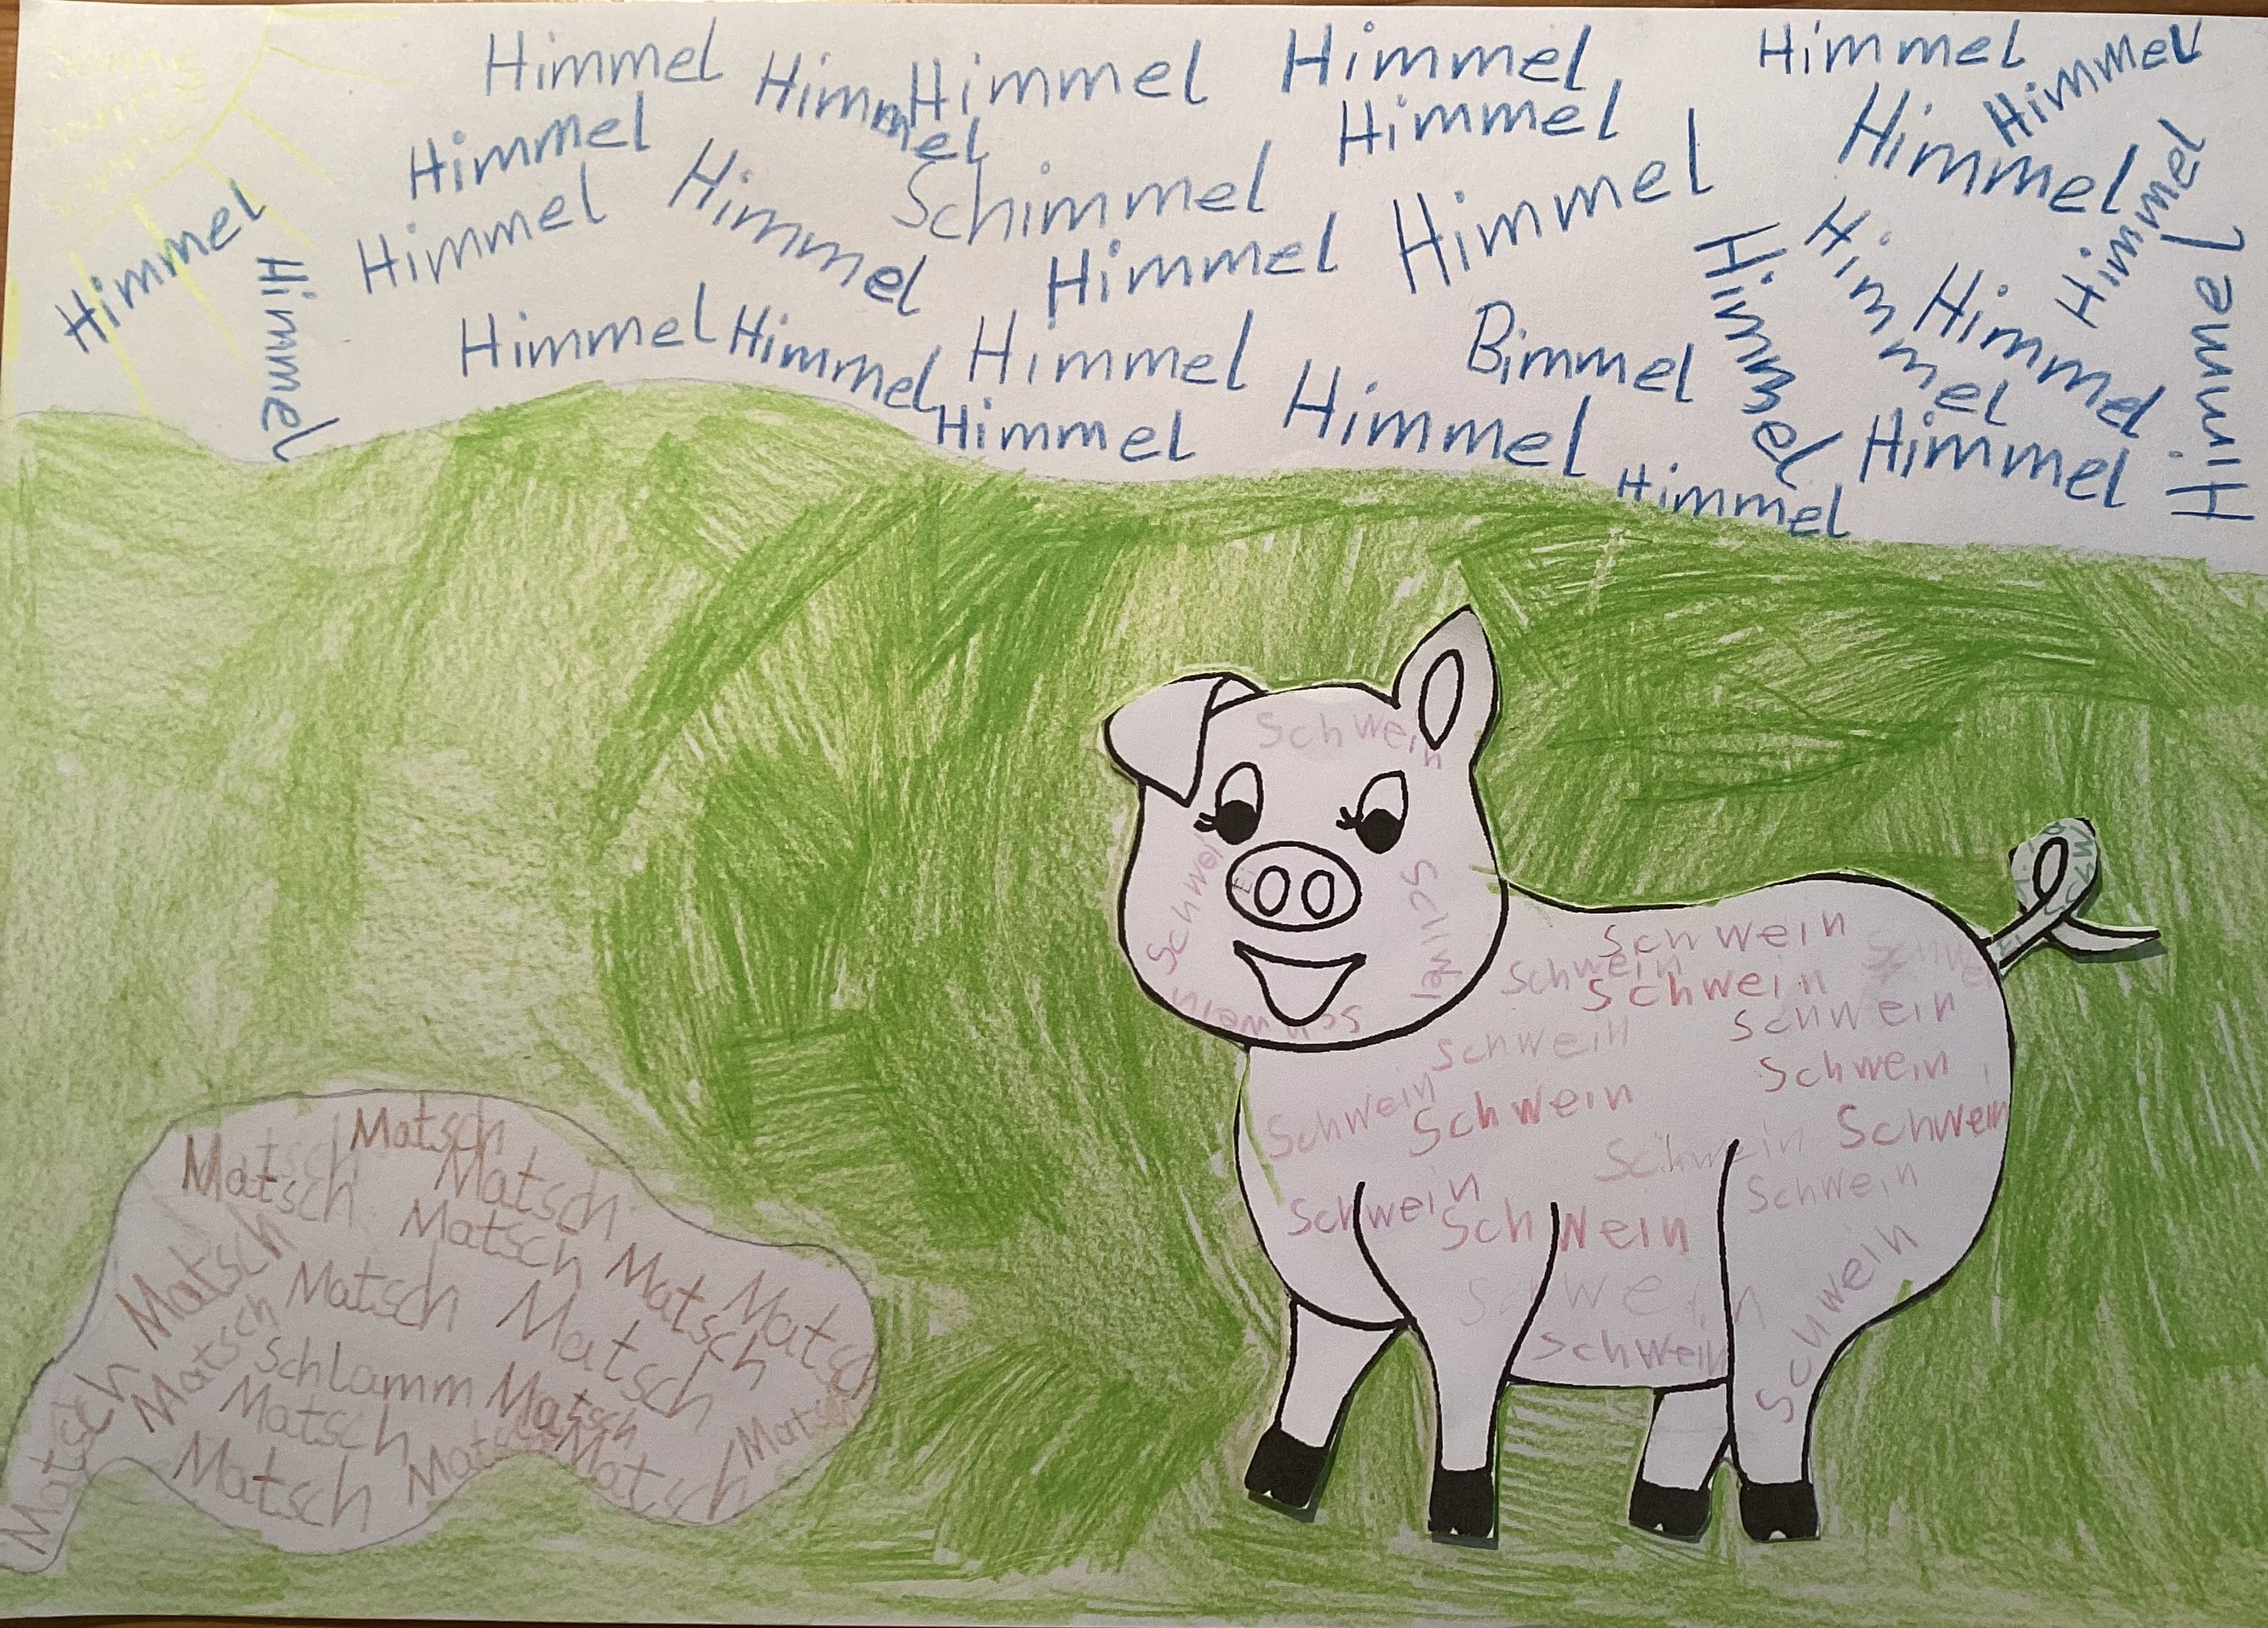 Sonne
Himmel
Himmel
Himmel
Himmel
Himmel
Himmel
Himmel
Himmel
Himmel
Himmel
Himmel
Schimmel
Himmel
Himmel
Himmel
Himmel
Himmel
Himmel
Himmel
Himmel
Himmel
Himmel
Himmel
Himmel
Himmel
Bimmel
Himmel
Himmel
Himmel
Himmel
Schwein
Schwein
Schwein
Schwein
Schwein
Schwein
Schwein
Schwein
Schwein
Schwein
Schwein
Schwein
Schwein
Schwein
Schwein
Schwein
Schwein
Schwein
Schwein
Schwein
Matsch
Matsch
Matsch
Matsch
Matsch
Matsch
Matsch
Matsch
Matsch
Matsch
Matsch
Schlamm
Matsch
Matsch
Matsch
Matsch
Matsch
Matsch
Matsch